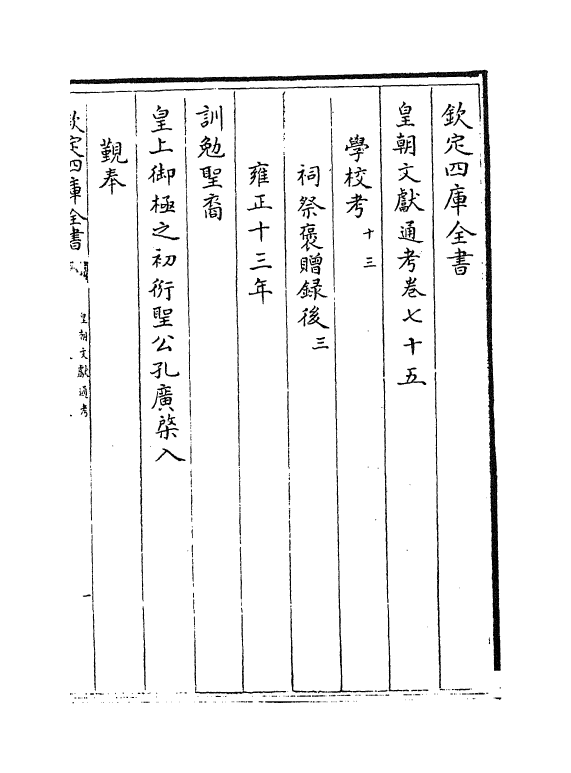 欽定四庫全書
皇朝文獻通考卷七十五
學校考十三
祠祭褒贈錄後三
雍正十三年
訓勉聖裔
皇上御極之初衍聖公孔廣棨入
覲奉
欽定四庫全書
皇朝文獻通考
一